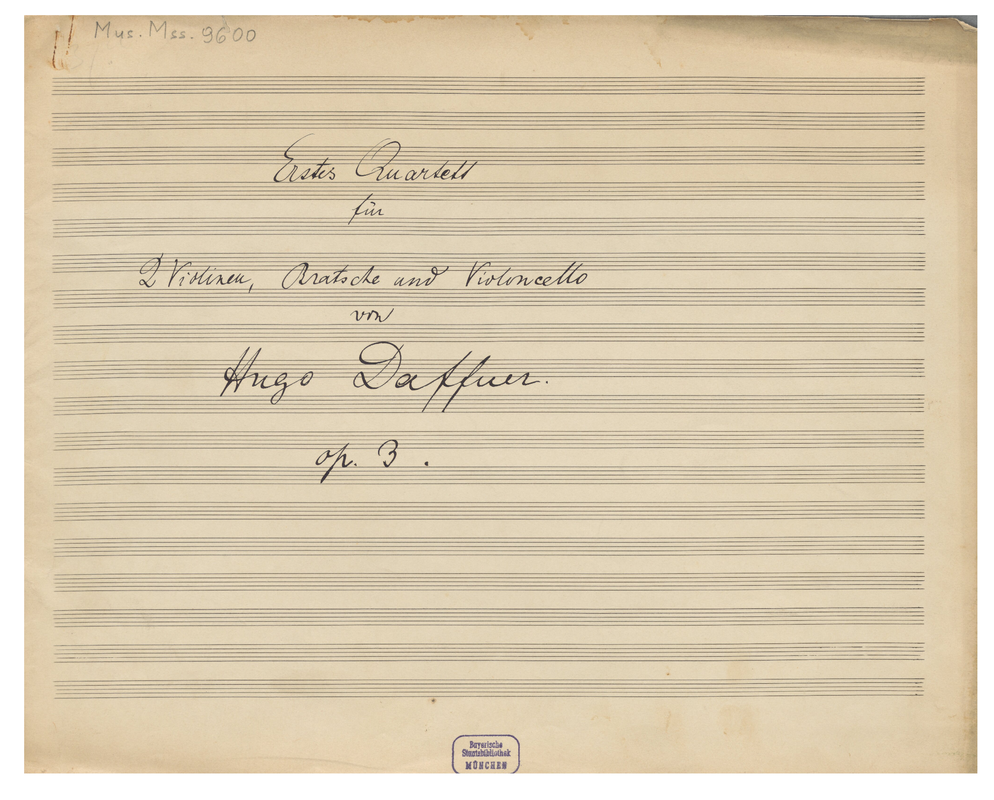 Mus. Mss. 9600
Erstes Quartett
für
2 Violinen, Bratsche und Violoncello
von
Hugo Daffner.
op. 3.
Bayerische
Staatsbibliothek
MÜNCHEN